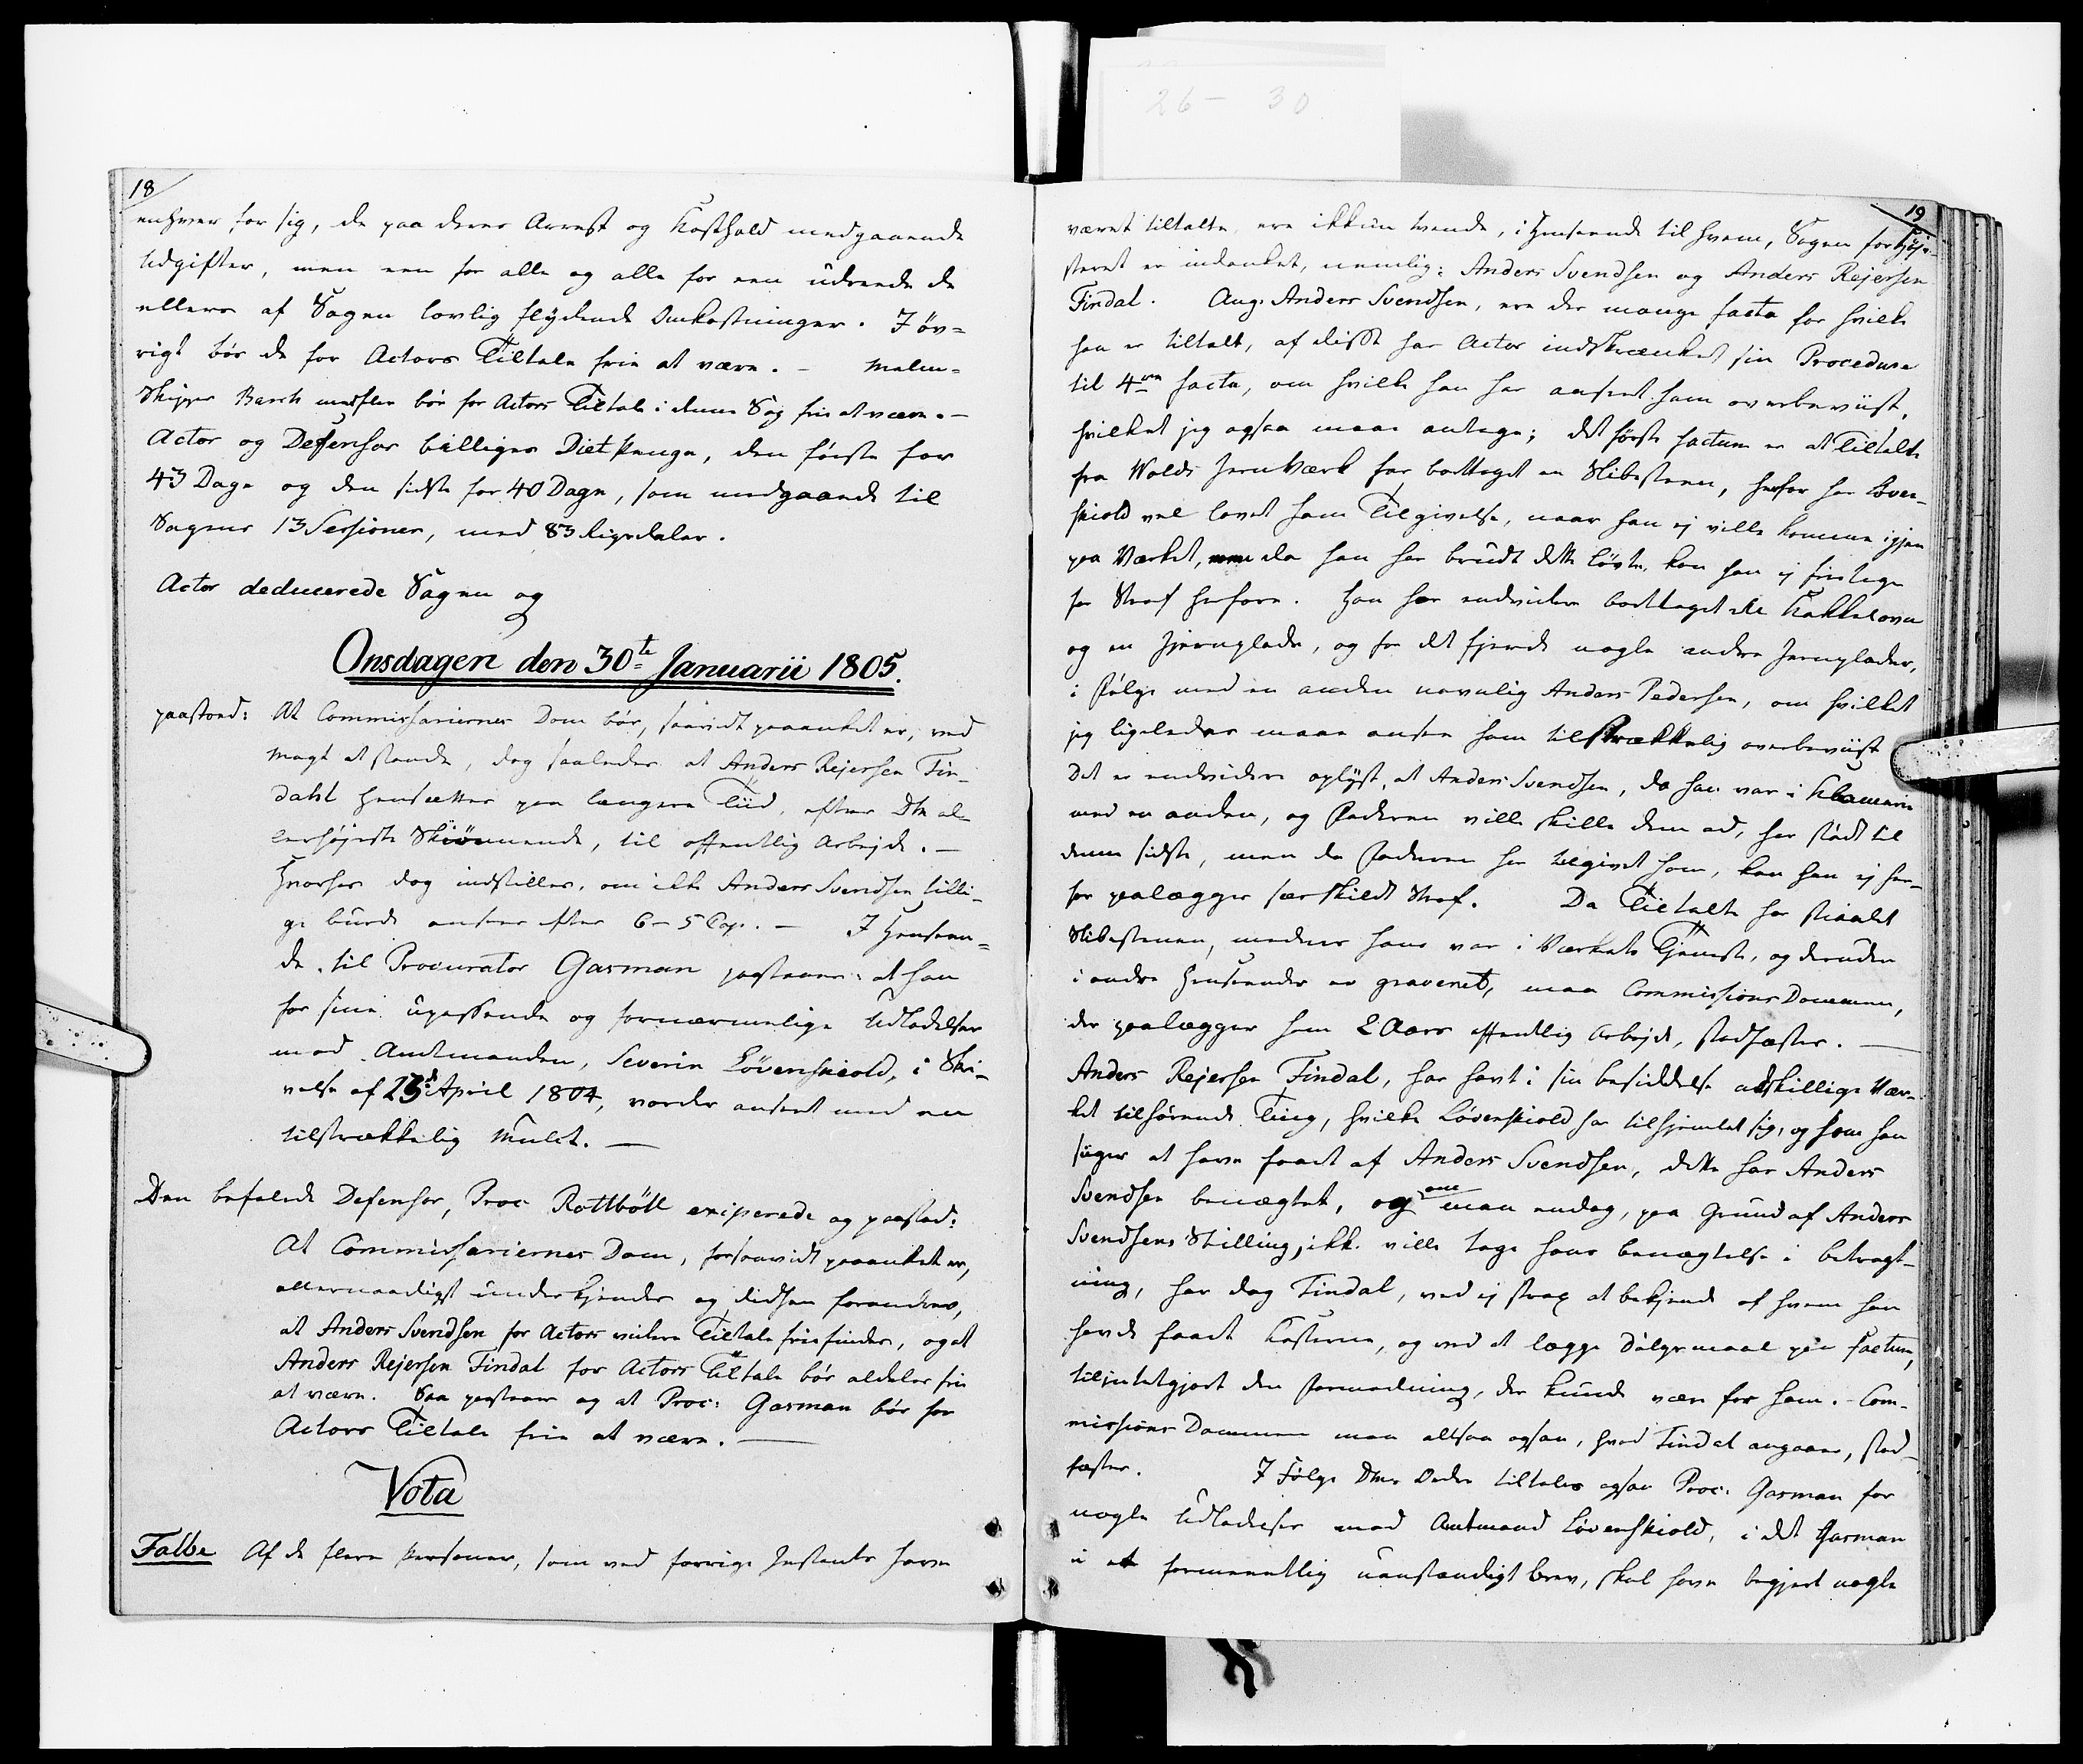 18
enhver for sig, de paa deres Arrest og Kosthold medgaaende
Udgifter, men een for alle og alle for een udreede de
ellers af Sagen lovlig flydende Omkostninger. I øv-
rigt bør de for Actors Tiltale frie at være. – Malm-
Skipper Barth bør for Actors Tiltale i denne Sag frie at være. –
Actor og Defensor billiges Diet Penge, den første for
43 Dage og den sidste for 40 Dage, som medgaaende til
Sagens 13 Sessioner, med 83 Rigsdaler.
Actor deducerede Sagen og
Onsdagen den 30te Januarii 1805.
paastod: At Commissariernes Dom bør, saavidt paaanket er, ved
Magt at stande, dog saaledes at Anders Rejersen Fin-
dahl hensættes paa længere Tiid, efter Dtn al-
lerhøjeste Skiønnende, til offentlig Arbejde. –
Hvorhos dog indstilles, om ikke Anders Svendsen tilli-
ge burde ansees efter 6 – 5 Cap. – I Henseen-
de til Procurator Gasman paastaaes: at han
for sine upassende og fornærmelige Udladelser
mod Amtmanden, Severin Løvenskiold, i Skri-
velse af 23d April 1804, vorder anseet med en
tilstrækkelig Mulct. –
Den befalede Defensor, Proc. Rottbøll exiperede og paastod:
At Commissariernes Dom, forsaavidt paaanket er,
allernaadigst underkjendes og didhen forandres,
at Anders Svendsen for Actors videre Tiltale frie findes, og at
Anders Rejersen Findal for Actors Tiltale bør aldeles frie
at være. Saa paastaaes og at Proc: Gasman bør for
Actors Tiltale frie at være. –
Vota
Falbe Af de flere Personer, som ved forrige Instants have
19
været tiltalte, ere ikkun tvende, i Henseende til hvem, Sagen for Høje-
steret er indanket, nemlig: Anders Svendsen og Anders Rejersen
Findal. Ang: Anders Svendsen, ere der mange facta for hvilke
han er tiltalt, af disse har Actor indskrænket sin Procedure
til 4re facta, om hvilke han har anseet ham overbeviist,
hvilket jeg ogsaa maae antage; det første factum er at Tiltalte
fra Wolds Jernværk har borttaget en Slibesteen, herfor har Løven-
skiold vel lovet ham Tilgivelse, naar han ej ville komme igjen
paa Værket, men da han har brudt dette Løvte, kan han ej fritages
for Straf herfore. Han har endvidere borttaget Kakkelovn
og en Jernplade, og for det fjerde nogle andre Jernplader,
i Følge med en anden navnlig Anders Pedersen, om hvilket
jeg ligeledes maae ansee ham tilstrækkelig overbeviist
Det er endvidere oplyst, at Anders Svendsen, da han var i Klammerie
med en anden, og Faderen ville skille dem ad, har stødt til
denne sidste, men da Faderen har tilgivet ham, kan han ej her-
for paalægges særskildt Straf. Da Tiltalte har stiaalet
Slibestenen, medens han var i Værkets Tjeneste, og desuden
i andre Henseender er graveret, maa Commissions Dommen,
der paalægger ham 2 Aars offentlig Arbejde, stadfæstes. –
Anders Rejersen Findal, har havt i sin besiddelse adskillige Vær-
ket tilhørende Ting, hvilke Løvenskiold har tilhjemlet sig, og som han
siger at have faaet af Anders Svendsen, dette har Anders
Svendsen benægtet, og om man endog, paa Grund af Anders
Svendsens Stilling, ikke ville tage hans benægtelse i betragt-
ning, har dog Findal, ved ej strax at bekjende af hvem han
havde faaet Kosterne, og ved at lægge Dølgsmaal paa factum,
tilintetgjort den Formodning, der kunde være for ham. – Com-
missions Dommen maa altsaa ogsaa, hvad Findal angaaer, stad-
fæstes. I Følge Dtns Ordre tiltales ogsaa Proc: Gasman for
nogle Udladelser mod Amtmand Løvenskiold, i det Gasman
i et formeentlig uanstændigt brev, skal have begjert nogle